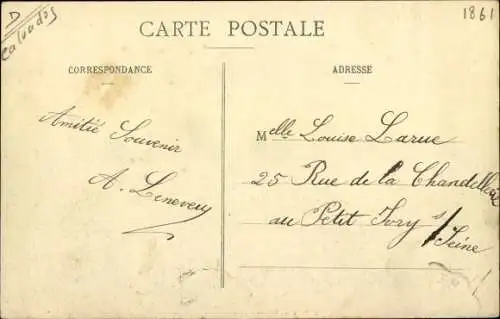 D
Calvados
1861
CARTE POSTALE
CORRESPONDANCE
ADRESSE
Amitié Souvenir
A. Leneveu
Melle Louise Larue
25 Rue de la Chandellerie
au Petit Ivry s/
Seine